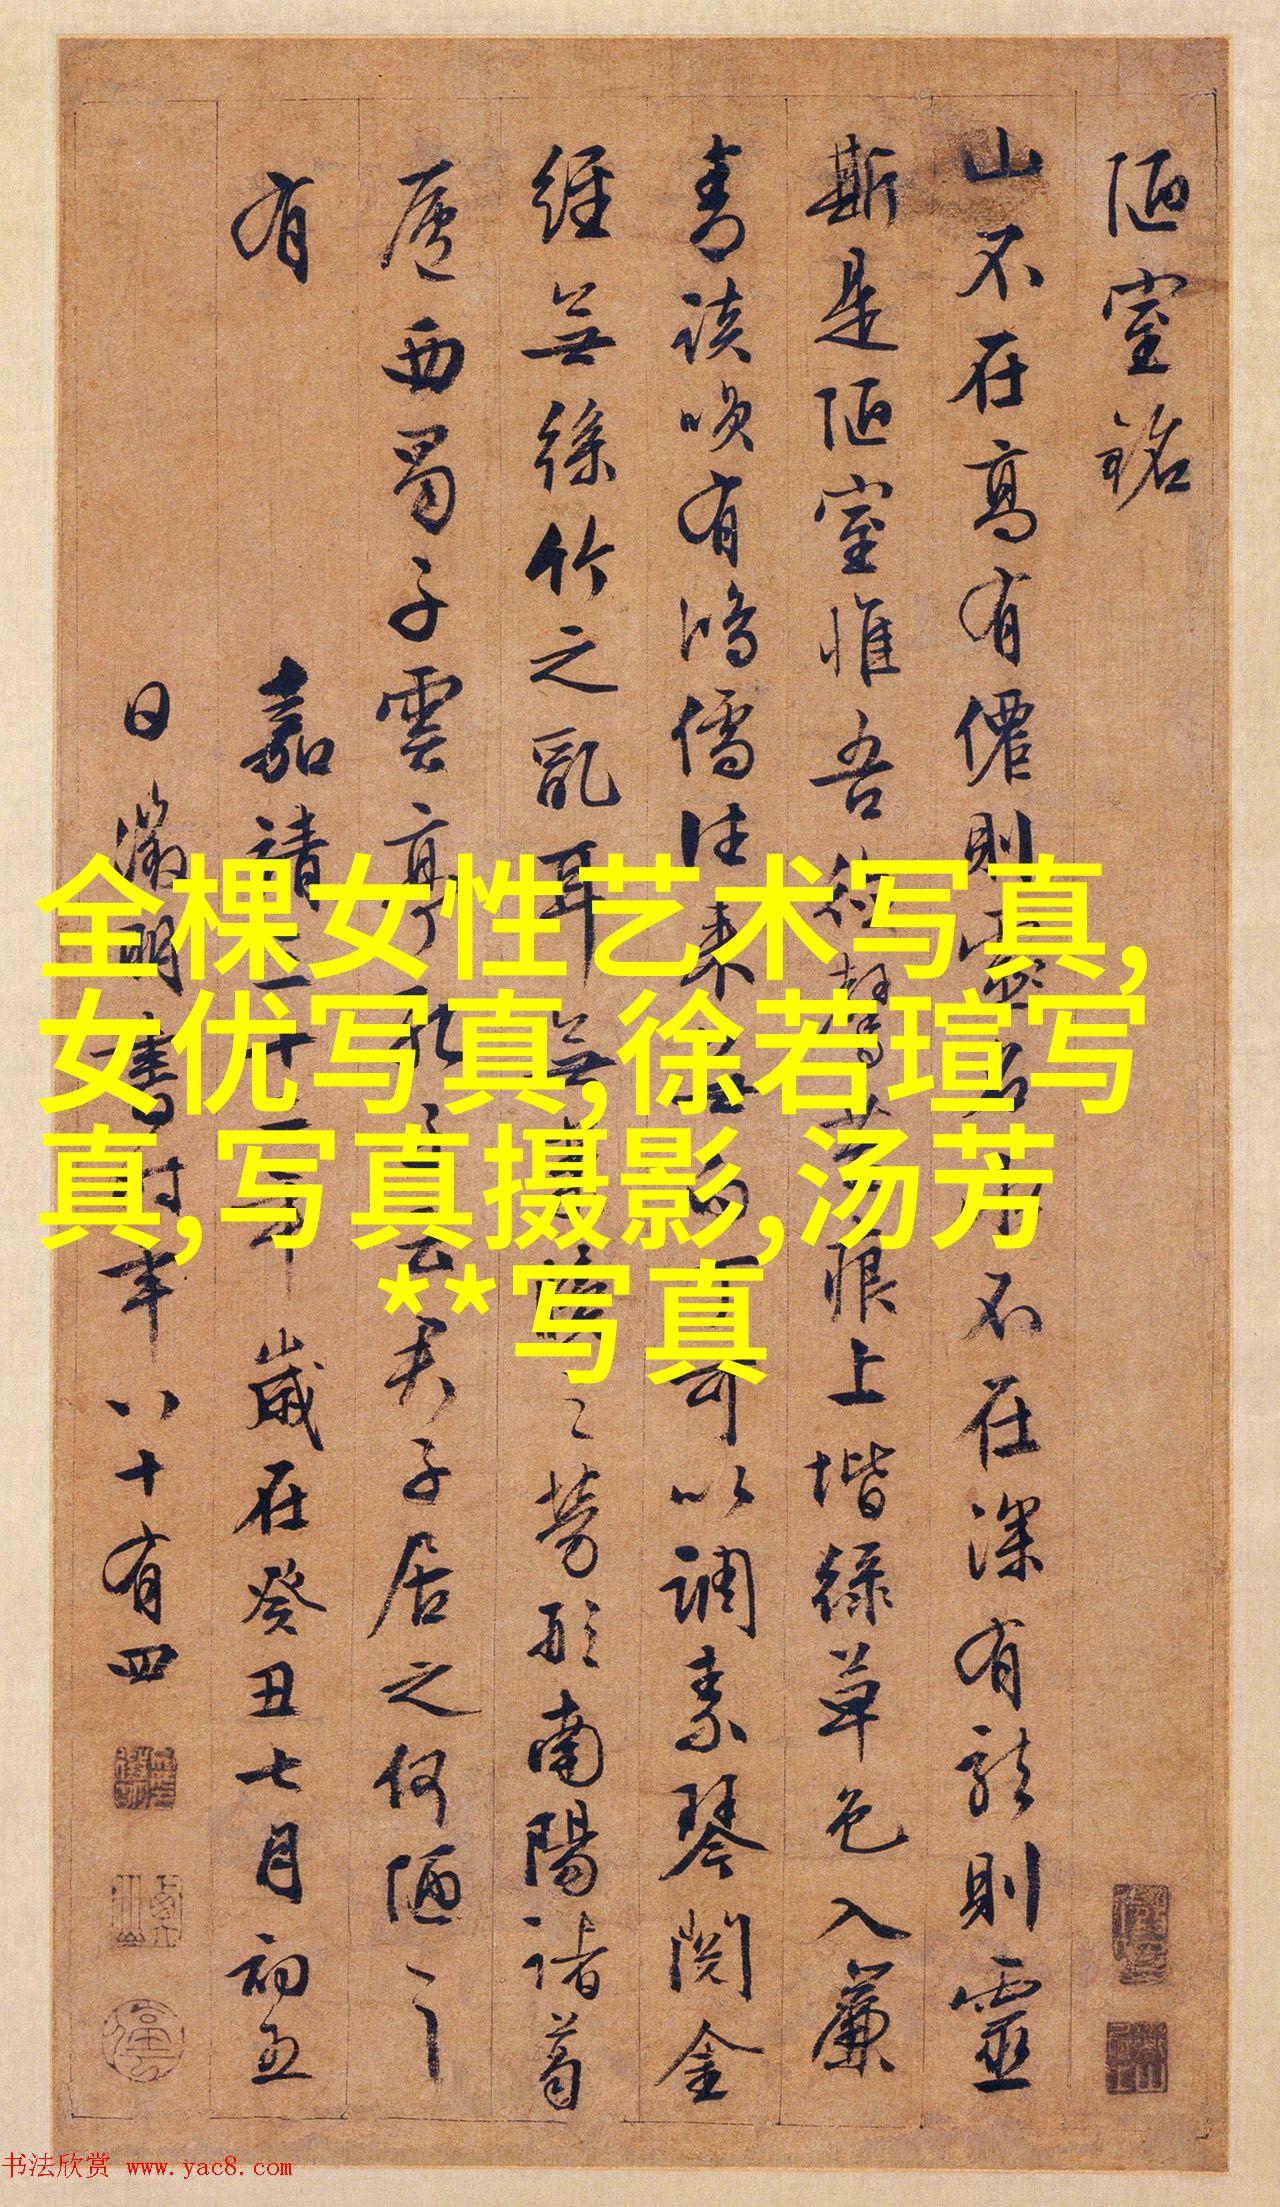 陋室銘
山不在高有僊則名水不在深有龍則靈
斯是陋室惟吾德馨苔痕上堦綠草色入簾
青談咲有鴻儒往來無白丁可以調素琴閱金
經無絲竹之亂耳無案牘之勞形南陽諸葛
廬西蜀子雲亭孔子云君子居之何陋之
有
嘉靖三十二年歲在癸丑七月初五
日徵明書時年八十有四
全棵女性艺术写真,
女优写真,徐若瑄写
真,写真摄影,汤芳
**写真
书法欣赏 www.yac8.com